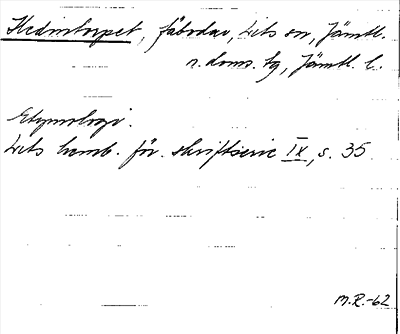 Hedintorpet, fäbodar, Lits sn, Jämtl.
n. doms. tg, Jämtl. l.
Etymologi.
Lits hemb. för. skriftserie IX, s. 35
M.R.-62